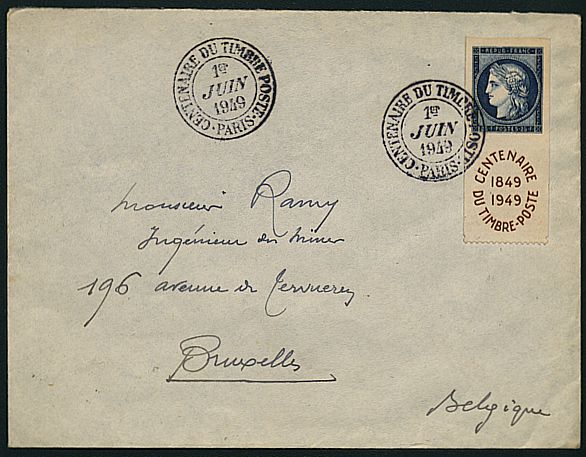 CENTENAIRE DU TIMBRE POSTE
PARIS
1er
JUIN
1949
CENTENAIRE DU TIMBRE POSTE
PARIS
1er
JUIN
1949
REPUB. FRANC.
POSTES
CENTENAIRE
1849
1949
DU TIMBRE-POSTE
Monsieur Ramy
Ingénieur des Mines
196 avenue de Tervueren
Bruxelles
Belgique